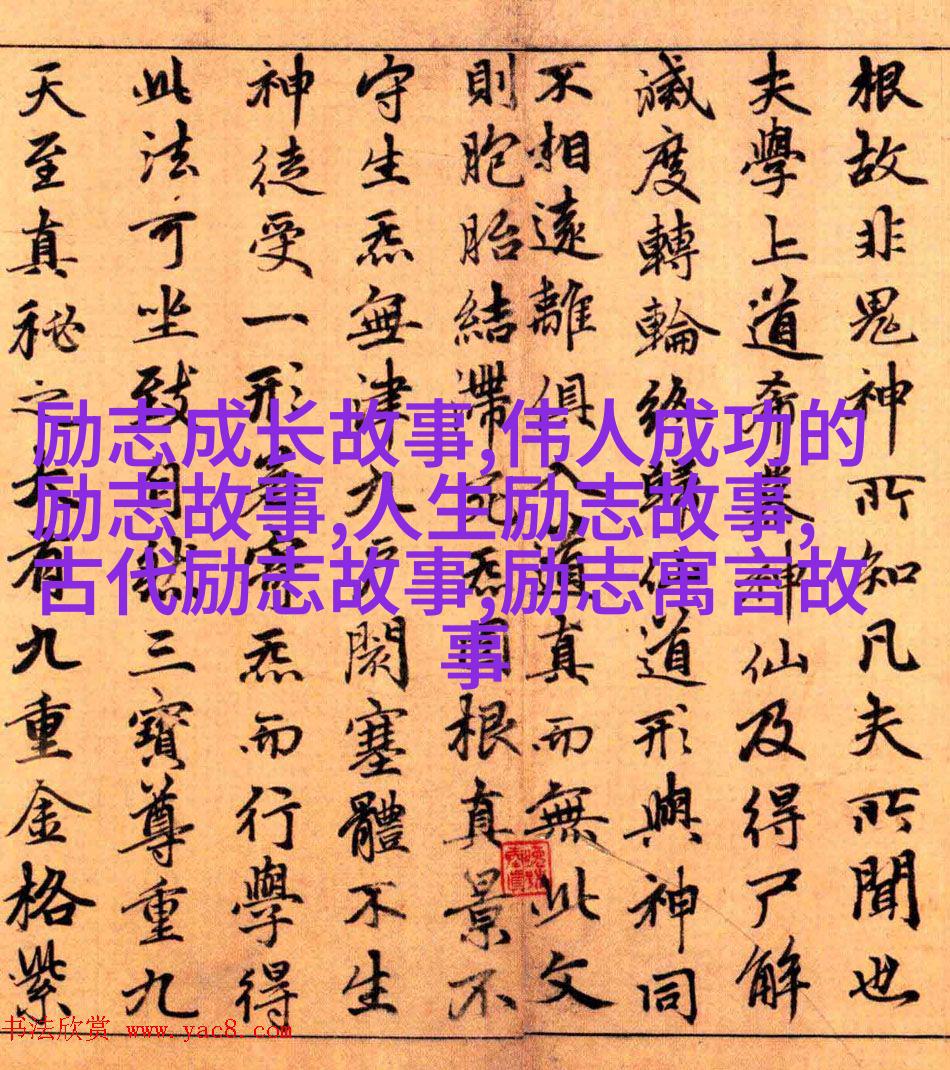 根故非鬼神所知凡夫所聞也
夫學上道希慕神仙及得尸解
滅度轉輪終歸仙道形與神同
不相遠離俱入道真而無此文
則胞胎結滯死炁固根真景不
守生炁無津九戶閡塞體不生
神徒受一形若寄炁而行學得
此法可坐致自然三寶尊重九
天至真秘之大有九重金格紫
励志成长故事,伟人成功的
励志故事,人生励志故事,
古代励志故事,励志寓言故
事
书法欣赏 www.yac8.com